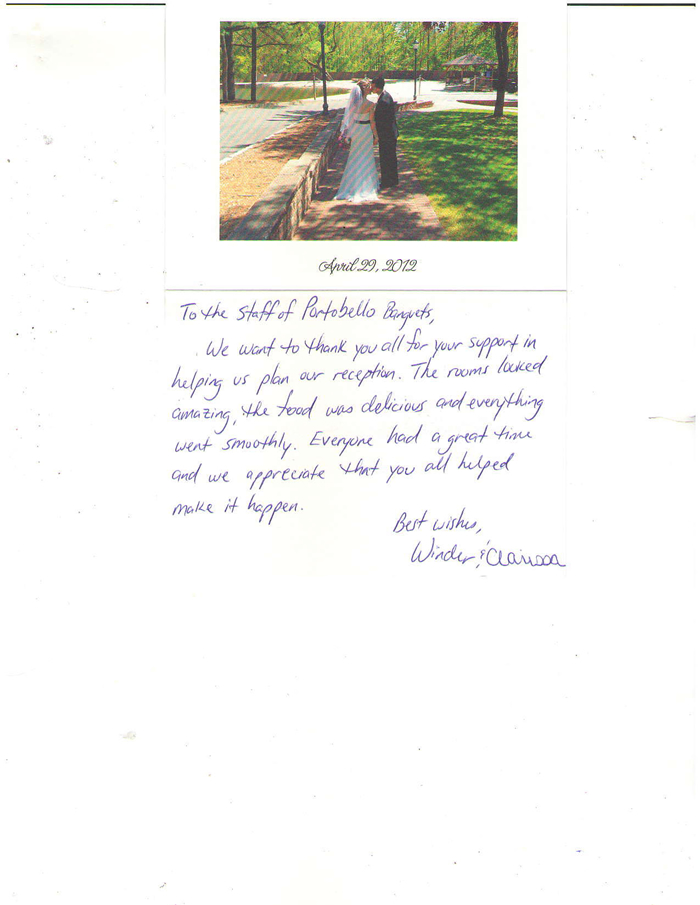 April 29, 2012
To the staff of Portobello Banquets,
We want to thank you all for your support in
helping us plan our reception. The rooms looked
amazing, the food was delicious and everything
went smoothly. Everyone had a great time
and we appreciate that you all helped
make it happen.
Best wishes,
Winder & Clarissa